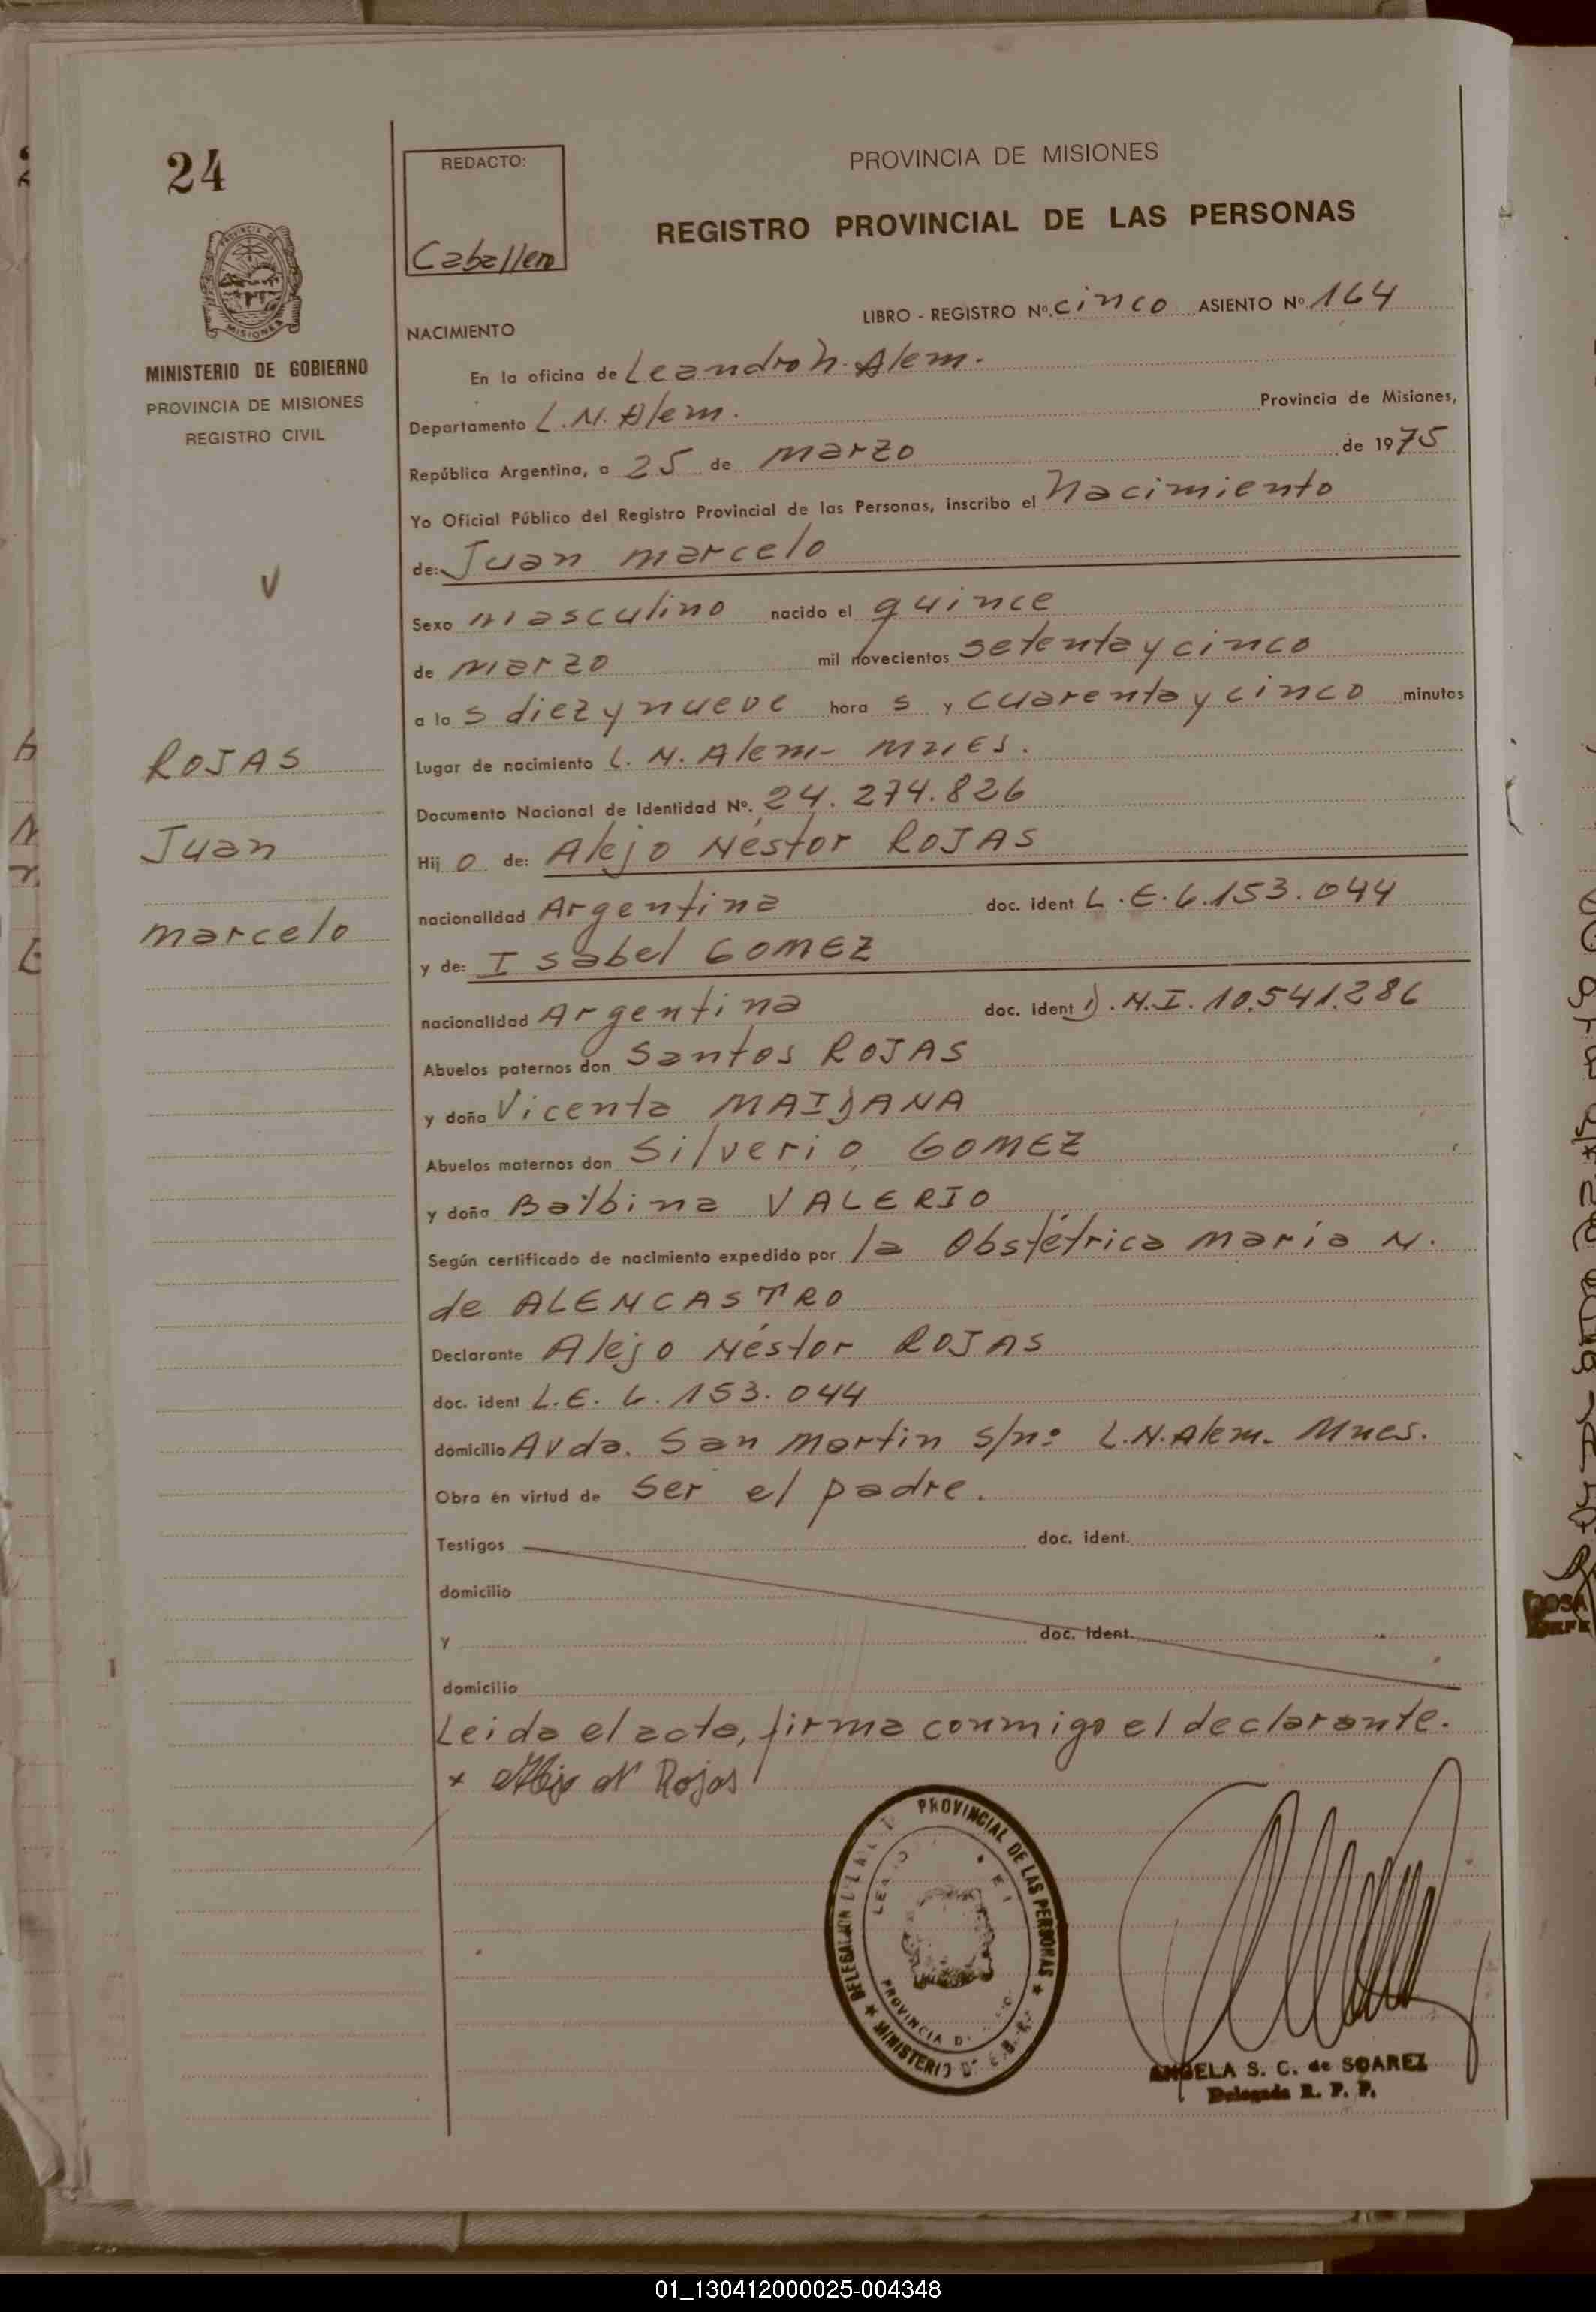 24
REDACTO:
Caballero
PROVINCIA DE MISIONES
REGISTRO PROVINCIAL DE LAS PERSONAS
MISIONES
MINISTERIO DE GOBIERNO
PROVINCIA DE MISIONES
REGISTRO CIVIL
LIBRO - REGISTRO Nº. cinco ASIENTO Nº 164
NACIMIENTO
En la oficina de Leandro N. Alem.
Departamento L. N. Alem. Provincia de Misiones,
República Argentina, a 25 de marzo de 1975
Yo Oficial Público del Registro Provincial de las Personas, inscribo el Nacimiento
de: Juan marcelo
Sexo masculino nacido el quince
de marzo mil novecientos setenta y cinco
a las diez y nueve horas y cuarenta y cinco minutos
Lugar de nacimiento L. N. Alem- Mnes.
Documento Nacional de Identidad Nº. 24.274.826
Hijo de: Alejo Néstor ROJAS
nacionalidad Argentina doc. ident L.E. 6.153.044
y de: Isabel GOMEZ
nacionalidad Argentina doc. ident D.N.I. 10.541.286
Abuelos paternos don Santos ROJAS
y doña Vicenta MAIDANA
Abuelos maternos don Silverio GOMEZ
y doña Balbina VALERIO
Según certificado de nacimiento expedido por la Obstétrica maría N.
de ALENCASTRO
Declarante Alejo Néstor ROJAS
doc. ident L.E. 6.153.044
domicilio Avda. San Martin s/nº L.N.Alem- Mnes.
Obra en virtud de ser el padre.
Testigos doc. ident.
domicilio
y doc. ident.
domicilio
Leida el acta, firma conmigo el declarante.
x Alejo N Rojas
ROJAS
Juan
marcelo
PROVINCIAL DE LAS PERSONAS
DELEGACION
PROVINCIA
MINISTERIO
ANGELA S. C. de SOAREZ
Delegada R. P. P.
01_130412000025-004348